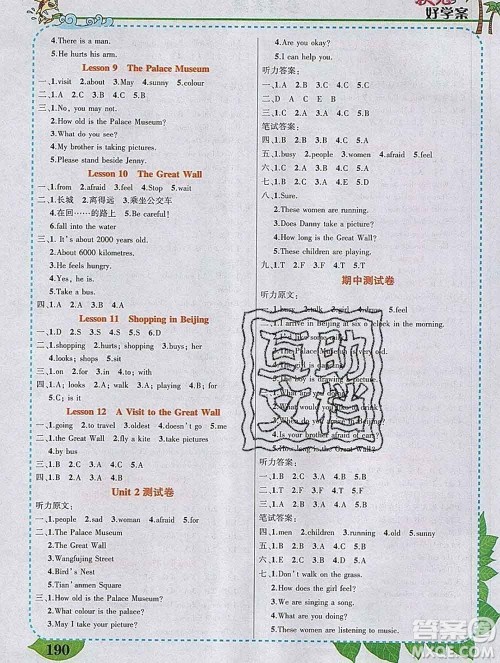 好学案
4.There is a man.
5.He hurts his arm.
Lesson 9 The Palace Museum
一、1.visit 2.about 3.May 4.sunny 5.colour
二、1.C 2.A 3.C 4.C 5.B
三、1.No, you may not.
2.How old is the Palace Museum?
3.What do you see?
4.My brother is taking pictures.
5.Please stand beside Jenny.
Lesson 10 The Great Wall
一、1.from 2.afraid 3.feel 4.Stop 5.wait
二、1.长城 2.离得远 3.乘坐公交车
4.在回……的路上 5.Be careful!
6.fall into the water
三、1.It's about 2000 years old.
2.About 6000 kilometres.
3.Yes, he is.
4.Yes, it is.
5.Take a bus.
四、1.A 2.C 3.B 4.C 5.C
Lesson 11 Shopping in Beijing
一、1.D 2.S 3.D 4.S 5.S
二、1.hurts; shopping 2.hurts; shopping 3.buy; it
4.looks; come 5.shopping; buy
三、1.B 2.C 3.A 4.C 5.A
四、1.A; looks 2.B; come 3.A; took 4.B; buy
5.C; is it
Lesson 12 A Visit to the Great Wall
一、1.going 2.to travel 3.oldest 4.doesn't go 5.me
二、1.the Great Wall 2.fly a kite 3.take pictures
4.by bus
三、1.B 2.C 3.A 4.C 四、1.B 2.C 3.A 4.B
Unit 2 测试卷
听力原文:
一、1.people 2.sad 3.woman 4.afraid 5.for
二、1.The Palace Museum
2.The Great Wall
3.Wangfujing Street
4.Bird's Nest
5.Tian'anmen Square
三、1.May I take your picture?
2.What colour is the palace?
3.How many people are there?
190
4.Are you okay?
5.I can help you.
听力答案:
一、1.A 2.B 3.A 4.A 5.B
二、D A C E B
三、1.A 2.C 3.B 4.C 5.B
笔试答案:
四、1.busy 2.people 3.women 4.afraid 5.feel
五、1.B 2.C 3.A 4.B 5.C
六、1.B 2.C 3.B 4.B 5.A
七、1.C 2.E 3.D 4.B 5.A
八、1.Sure.
2.These women are running.
3.Does Danny take a picture?
4.How long is the Great Wall?
5.They are looking at the kites.
九、1.T 2.F 3.T 4.T 5.F
期中测试卷
听力原文:
5.feel
arrive in Beijing at six o'clock in the morning.
The Palace Museum is very old.
boy is drawing a picture.
What would you like
4.Is your brother afraid of car?
5.How long is the Great Wall?
听力答案:
一、1.B 2.A 3.B 4.C 5.A
笔试答案:
四、1.men 2.children 3.running 4.old 5.sad
五、1.B 2.A 3.C 4.B 5.C
六、1.C 2.A 3.A 4.B 5.C
七、1.Don't walk on the grass.
2.How does the girl feel?
3.I see three children.
4.Jenny and I are singing.
5.These women are listening to music.
互助文档
答案圈
MXQE.COM